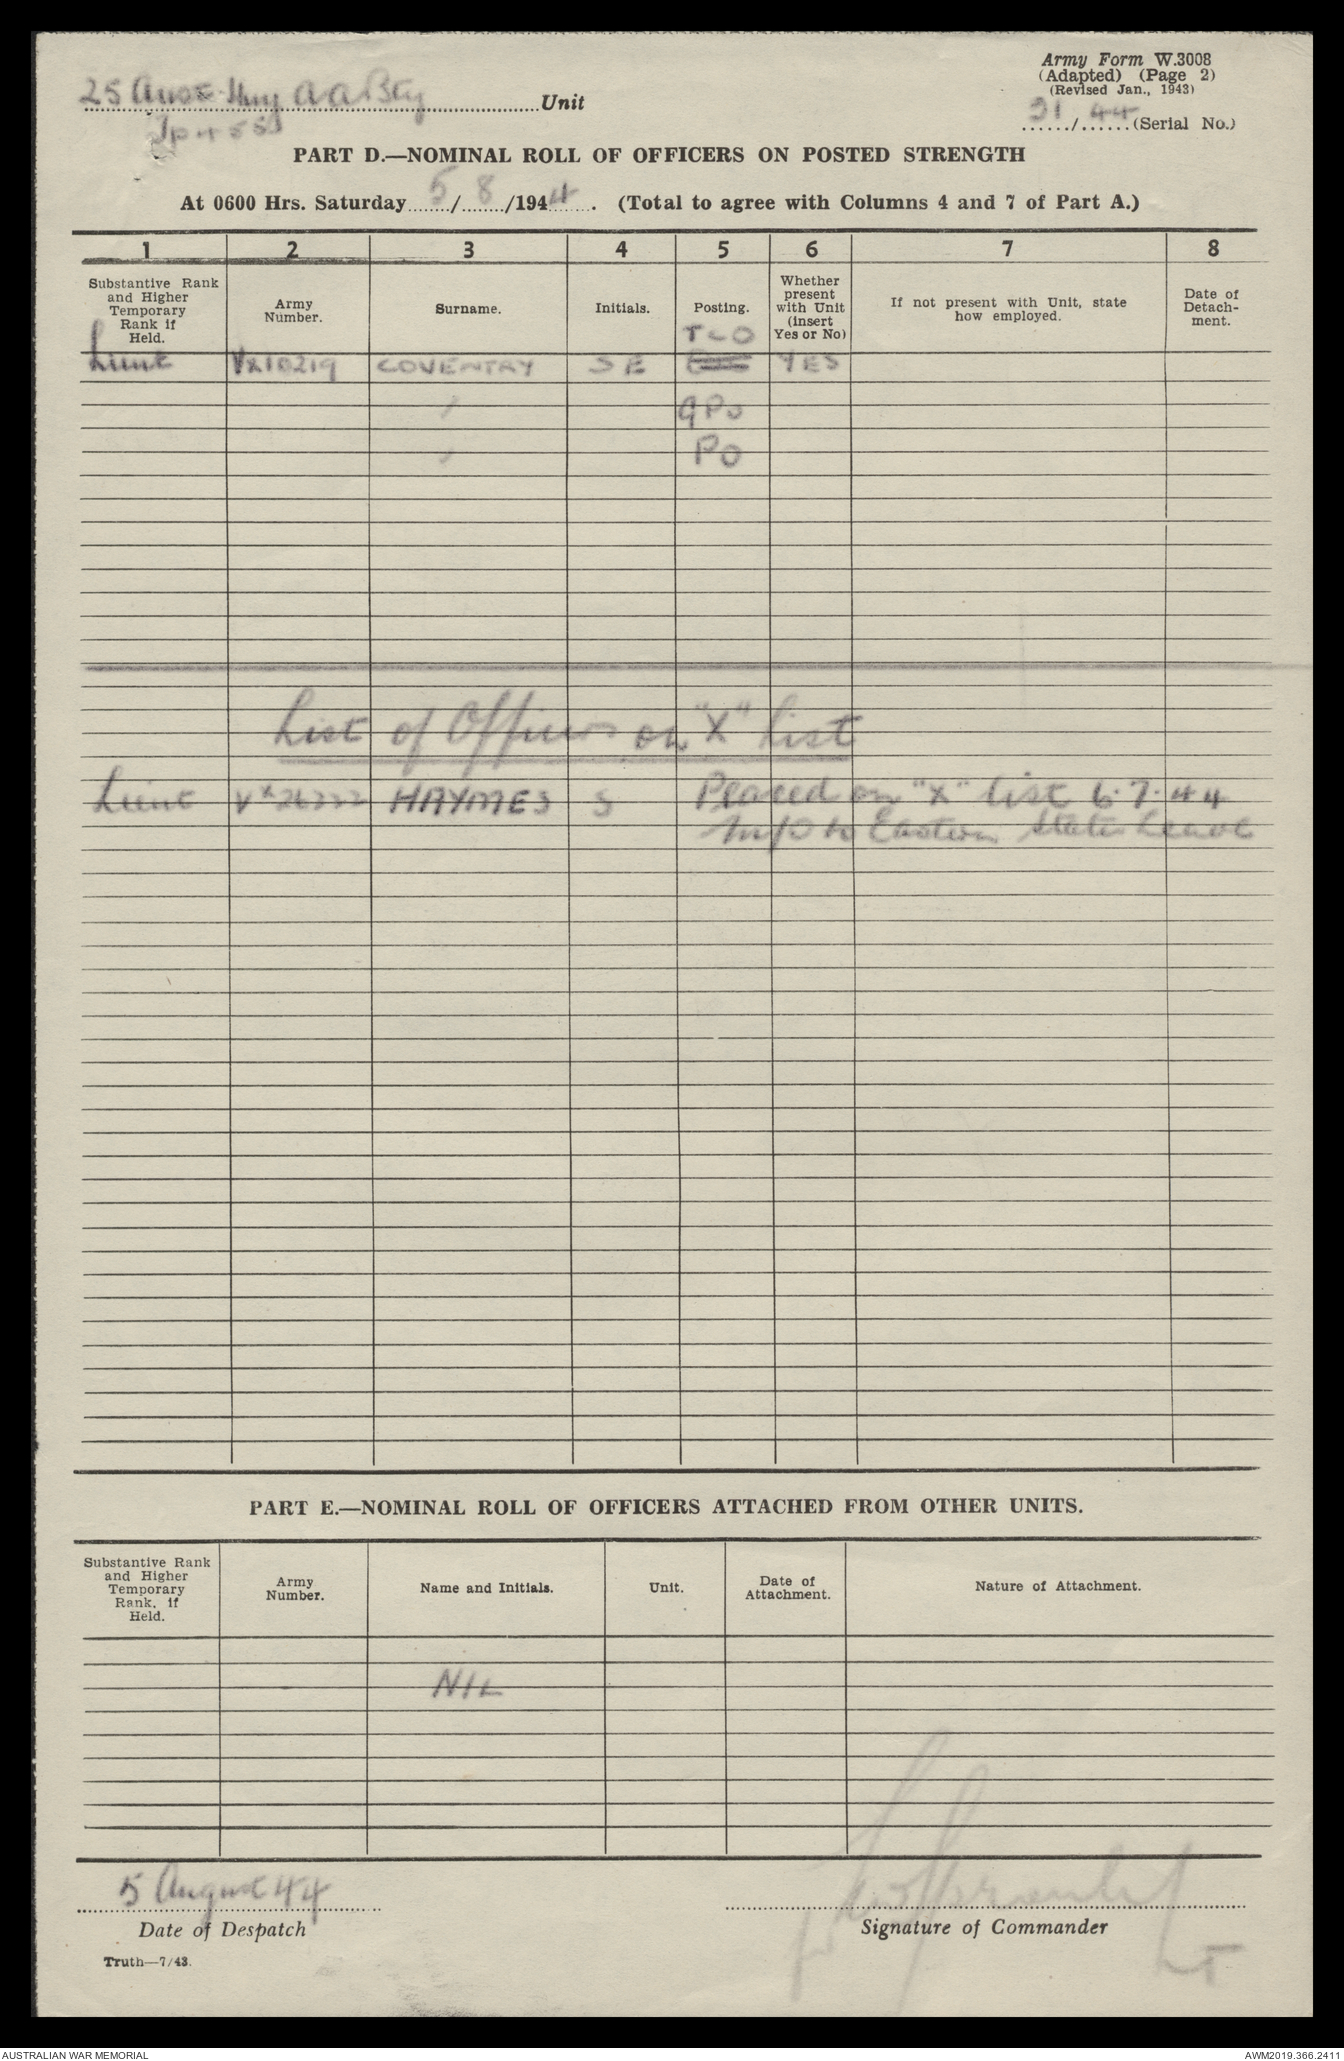 Army Form W.3008
(Adapted) (Page 2)
(Revised Jan., 1943)
25 Aust Hvy AA Bty Unit
31/44 (Serial No.)
PART D.—NOMINAL ROLL OF OFFICERS ON POSTED STRENGTH
At 0600 Hrs. Saturday 5/8/1944. (Total to agree with Columns 4 and 7 of Part A.)
1 2 3 4 5 6 7 8
Substantive Rank and Higher Temporary Rank if Held. Army Number. Surname. Initials. Posting. Whether present with Unit (Insert Yes or No) If not present with Unit, state how employed. Date of Detach-ment.
TLO
Lieut VX110219 COVENTRY S E YES
GPO
PO
List of Officers on "X" List
Lieut HAYMES S Placed on "X" list 6.7.44
M/O to Eastern States Leave
PART E.—NOMINAL ROLL OF OFFICERS ATTACHED FROM OTHER UNITS.
Substantive Rank and Higher Temporary Rank, if Held. Army Number. Name and Initials. Unit. Date of Attachment. Nature of Attachment.
NIL
5 August 44
Date of Despatch
Signature of Commander
Lt
Truth—7/43.
AUSTRALIAN WAR MEMORIAL
AWM2019.366.2411